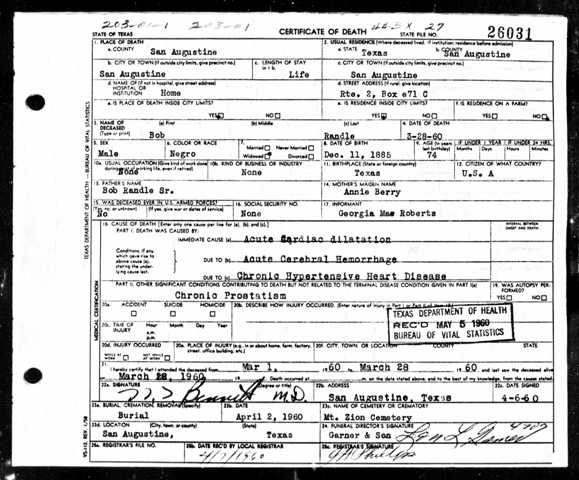 203-01-1 203-01 443X 27
STATE OF TEXAS CERTIFICATE OF DEATH STATE FILE NO. 26031
1. PLACE OF DEATH 2. USUAL RESIDENCE (Where deceased lived. If institution: residence before admission)
a. COUNTY San Augustine a. STATE Texas b. COUNTY San Augustine
b. CITY OR TOWN (If outside city limits, give precinct no.) c. LENGTH OF STAY in 1 b. c. CITY OR TOWN (If outside city limits, give precinct no.)
San Augustine Life San Augustine
d. NAME OF (If not in hospital, give street address) HOSPITAL OR INSTITUTION Home d. STREET ADDRESS (If rural, give location) Rte. 2, Box e71 C
e. IS PLACE OF DEATH INSIDE CITY LIMITS? e. IS RESIDENCE INSIDE CITY LIMITS? f. IS RESIDENCE ON A FARM?
YES NO YES NO YES NO
3. NAME OF DECEASED (Type or print) (a) First (b) Middle (c) Last 4. DATE OF DEATH
Bob Randle 3-28-60
5. SEX 6. COLOR OR RACE 7. Married Never Married Widowed Divorced 8. DATE OF BIRTH 9. AGE (In years last birthday) IF UNDER 1 YEAR IF UNDER 24 HRS.
Months Days Hours Min.
Male Negro Dec. 11, 1885 74
10a. USUAL OCCUPATION (Give kind of work done during most of working life, even if retired) 10b. KIND OF BUSINESS OR INDUSTRY 11. BIRTHPLACE (State or foreign country) 12. CITIZEN OF WHAT COUNTRY?
None None Texas U.S. A
13. FATHER'S NAME 14. MOTHER'S MAIDEN NAME
Bob Randle Sr. Annie Berry
15. WAS DECEASED EVER IN U.S. ARMED FORCES? 16. SOCIAL SECURITY NO. 17. INFORMANT
(Yes, no, or unknown) (If yes, give war or dates of service)
No None Georgia Mae Roberts
18. CAUSE OF DEATH (Enter only one cause per line for (a), (b), and (c).) INTERVAL BETWEEN ONSET AND DEATH
PART I. DEATH WAS CAUSED BY:
IMMEDIATE CAUSE (a) Acute Cardiac dilatation
Conditions, if any, which gave rise to above cause (a), stating the underlying cause last.
DUE TO (b) Acute Cerebral Hemorrhage
DUE TO (c) Chronic Hypertensive Heart Disease
PART II. OTHER SIGNIFICANT CONDITIONS CONTRIBUTING TO DEATH BUT NOT RELATED TO THE TERMINAL DISEASE CONDITION GIVEN IN PART I(a) 19. WAS AUTOPSY PERFORMED?
Chronic Prostatism YES NO
20a. ACCIDENT SUICIDE HOMICIDE 20b. DESCRIBE HOW INJURY OCCURRED. (Enter nature of injury in Part I or Part II of item 18.)
TEXAS DEPARTMENT OF HEALTH
REC'D MAY 5 1960
BUREAU OF VITAL STATISTICS
20c. TIME OF INJURY Hour Month Day Year
a.m.
p.m.
20d. INJURY OCCURRED 20e. PLACE OF INJURY (e.g., in or about home, farm, factory, street, office building, etc.) 20f. CITY, TOWN, OR LOCATION COUNTY STATE
WHILE AT WORK NOT WHILE AT WORK
21. I hereby certify that I attended the deceased from Mar 1, 1960 to March 28 1960 and last saw the deceased alive on
March 28, 1960. Death occurred at m. on the date stated above, and to the best of my knowledge, from the causes stated.
22a. SIGNATURE (Degree or title) 22b. ADDRESS 22c. DATE SIGNED
Bennett M.D. San Augustine, Texas 4-6-60
23a. BURIAL, CREMATION, REMOVAL (Specify) 23b. DATE 23c. NAME OF CEMETERY OR CREMATORY
Burial April 2, 1960 Mt. Zion Cemetery
23d. LOCATION (City, town, or county) (State) 24. FUNERAL DIRECTOR'S SIGNATURE
San Augustine, Texas Garner & Son
25a. REGISTRAR'S FILE NO. 25b. DATE REC'D BY LOCAL REGISTRAR 25c. REGISTRAR'S SIGNATURE
4/7/1960 Phillips
TEXAS DEPARTMENT OF HEALTH — BUREAU OF VITAL STATISTICS
MEDICAL CERTIFICATION